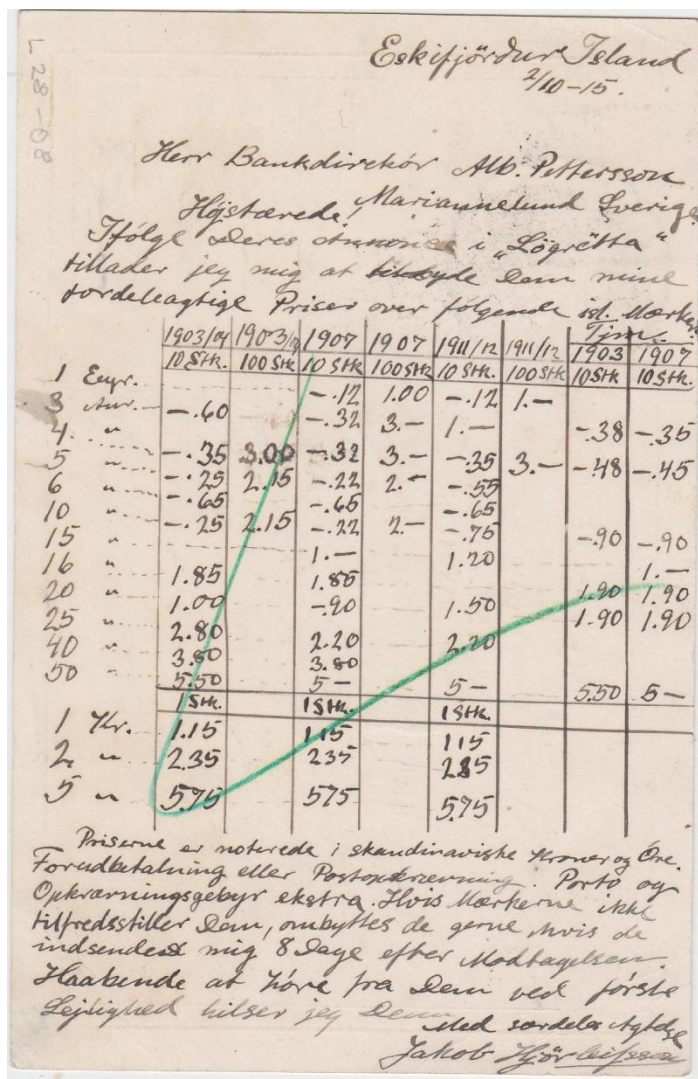 L 28-08
Eskifjördur Island
2/10-15.
Herr Bankdirektör Alb. Pettersson
Mariannelund Sverige
Höjstærede!
Ifølge Deres Annonce i „Lögrétta“
tillader jeg mig at tilbyde Dem mine
fordelagtige Priser over følgende isl. Mærker.
Tjen.
1903/04 1903/04 1907 1907 1911/12 1911/12 1903 1907
10 Stk. 100 Stk 10 Stk 100 Stk 10 Stk. 100 Stk 10 Stk 10 Stk.
1 Eyr. -.12 1.00 -.12 1.-
3 Aur. -.60 -.32 3.- 1.- -.38 -.35
4 " -.35 3.00 -.32 3.- -.35 3.- -.48 -.45
5 " -.25 2.15 -.22 2.- -.55
6 " -.65 -.65 -.65
10 " -.25 2.15 -.22 2.- -.75 -.90 -.90
15 " 1.- 1.20 1.-
16 " 1.85 1.85 1.90 1.90
20 " 1.00 -.90 1.50 1.90 1.90
25 " 2.80 2.20 2.20
40 " 3.80 3.80
50 " 5.50 5- 5- 5.50 5-
1 Stk. 1 Stk. 1 Stk.
1 Kr. 1.15 1.15 115
2 " 2.35 235 235
5 " 5.75 575 5.75
Priserne er noterede i skandinaviske Kroner og Øre.
Forudbetalning eller Postopkrævning. Porto og
Opkrævningsgebyr ekstra. Hvis Mærkerne ikke
tilfredsstiller Dem, ombyttes de gerne hvis de
indsendes mig 8 Dage efter Modtagelsen.
Haabende at höre fra Dem ved förste
Lejlighed hilser jeg Dem
Med særdeles Agtelse
Jakob Hjörleifsson